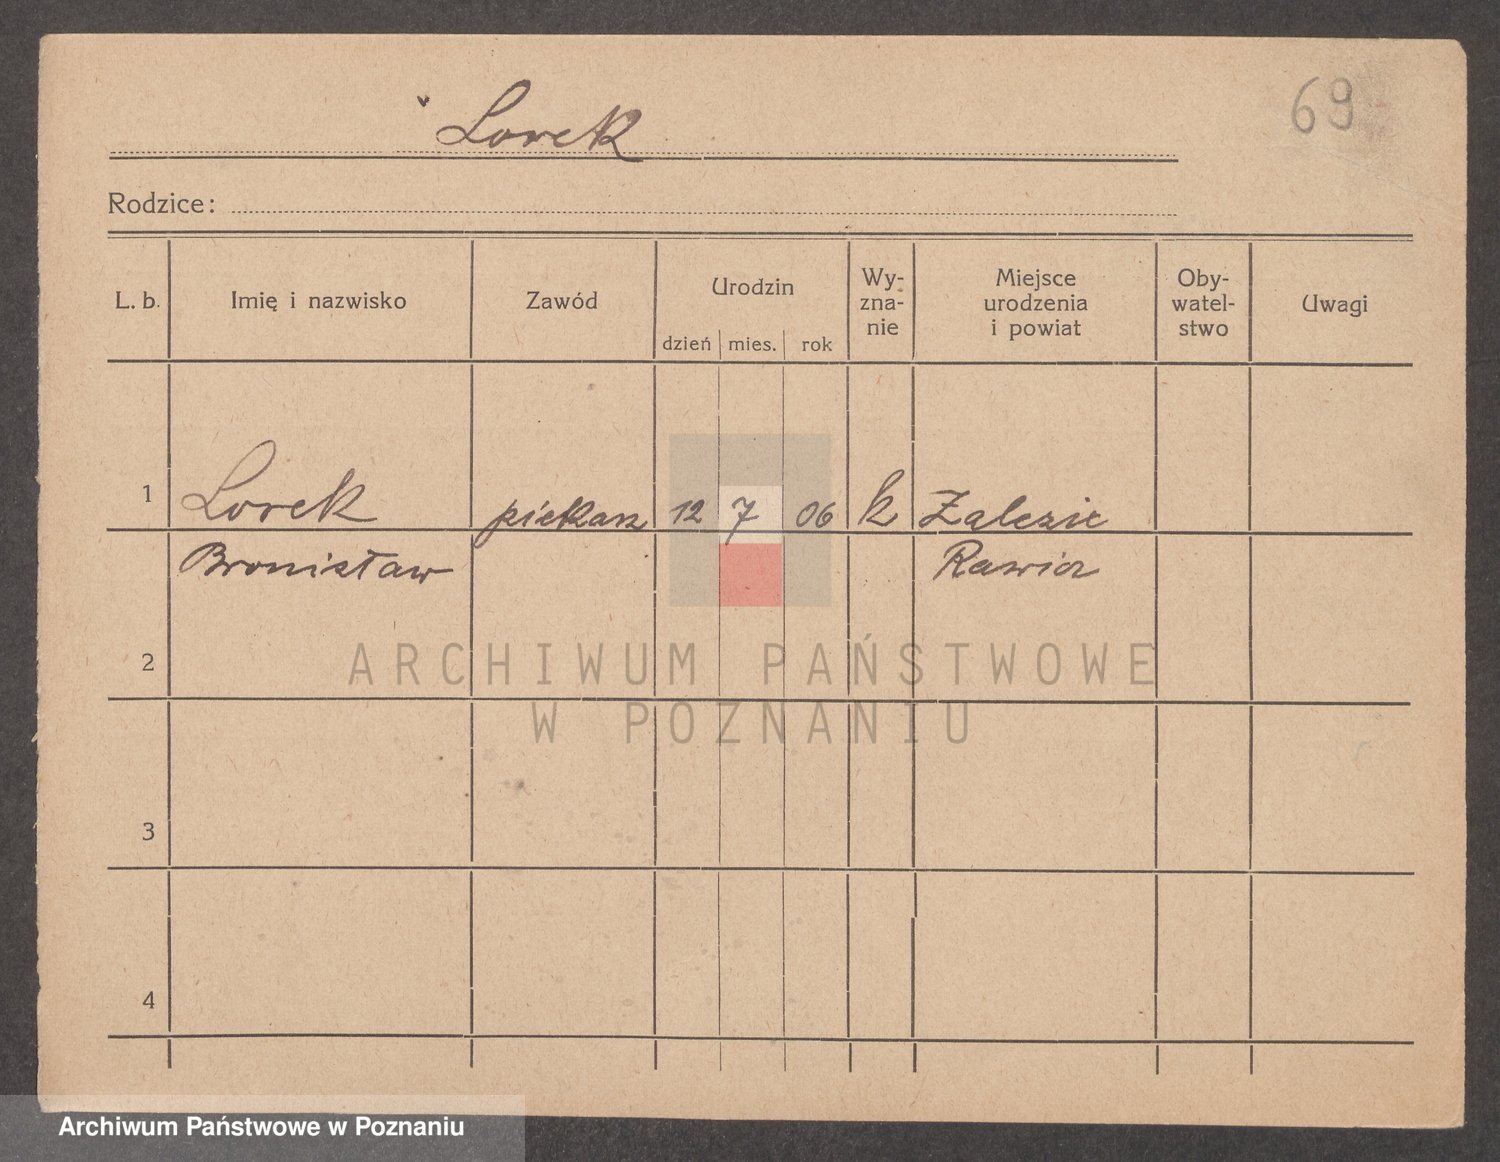 Lorek
69
Rodzice:
L. b. Imię i nazwisko Zawód Urodzin dzień mies. rok Wy-zna-nie Miejsce urodzenia i powiat Oby-watel-stwo Uwagi
1 Lorek piekarz 12 7 06 k Zalesie
Bronisław Rawicz
2
ARCHIWUM PAŃSTWOWE
W POZNANIU
3
4
Archiwum Państwowe w Poznaniu